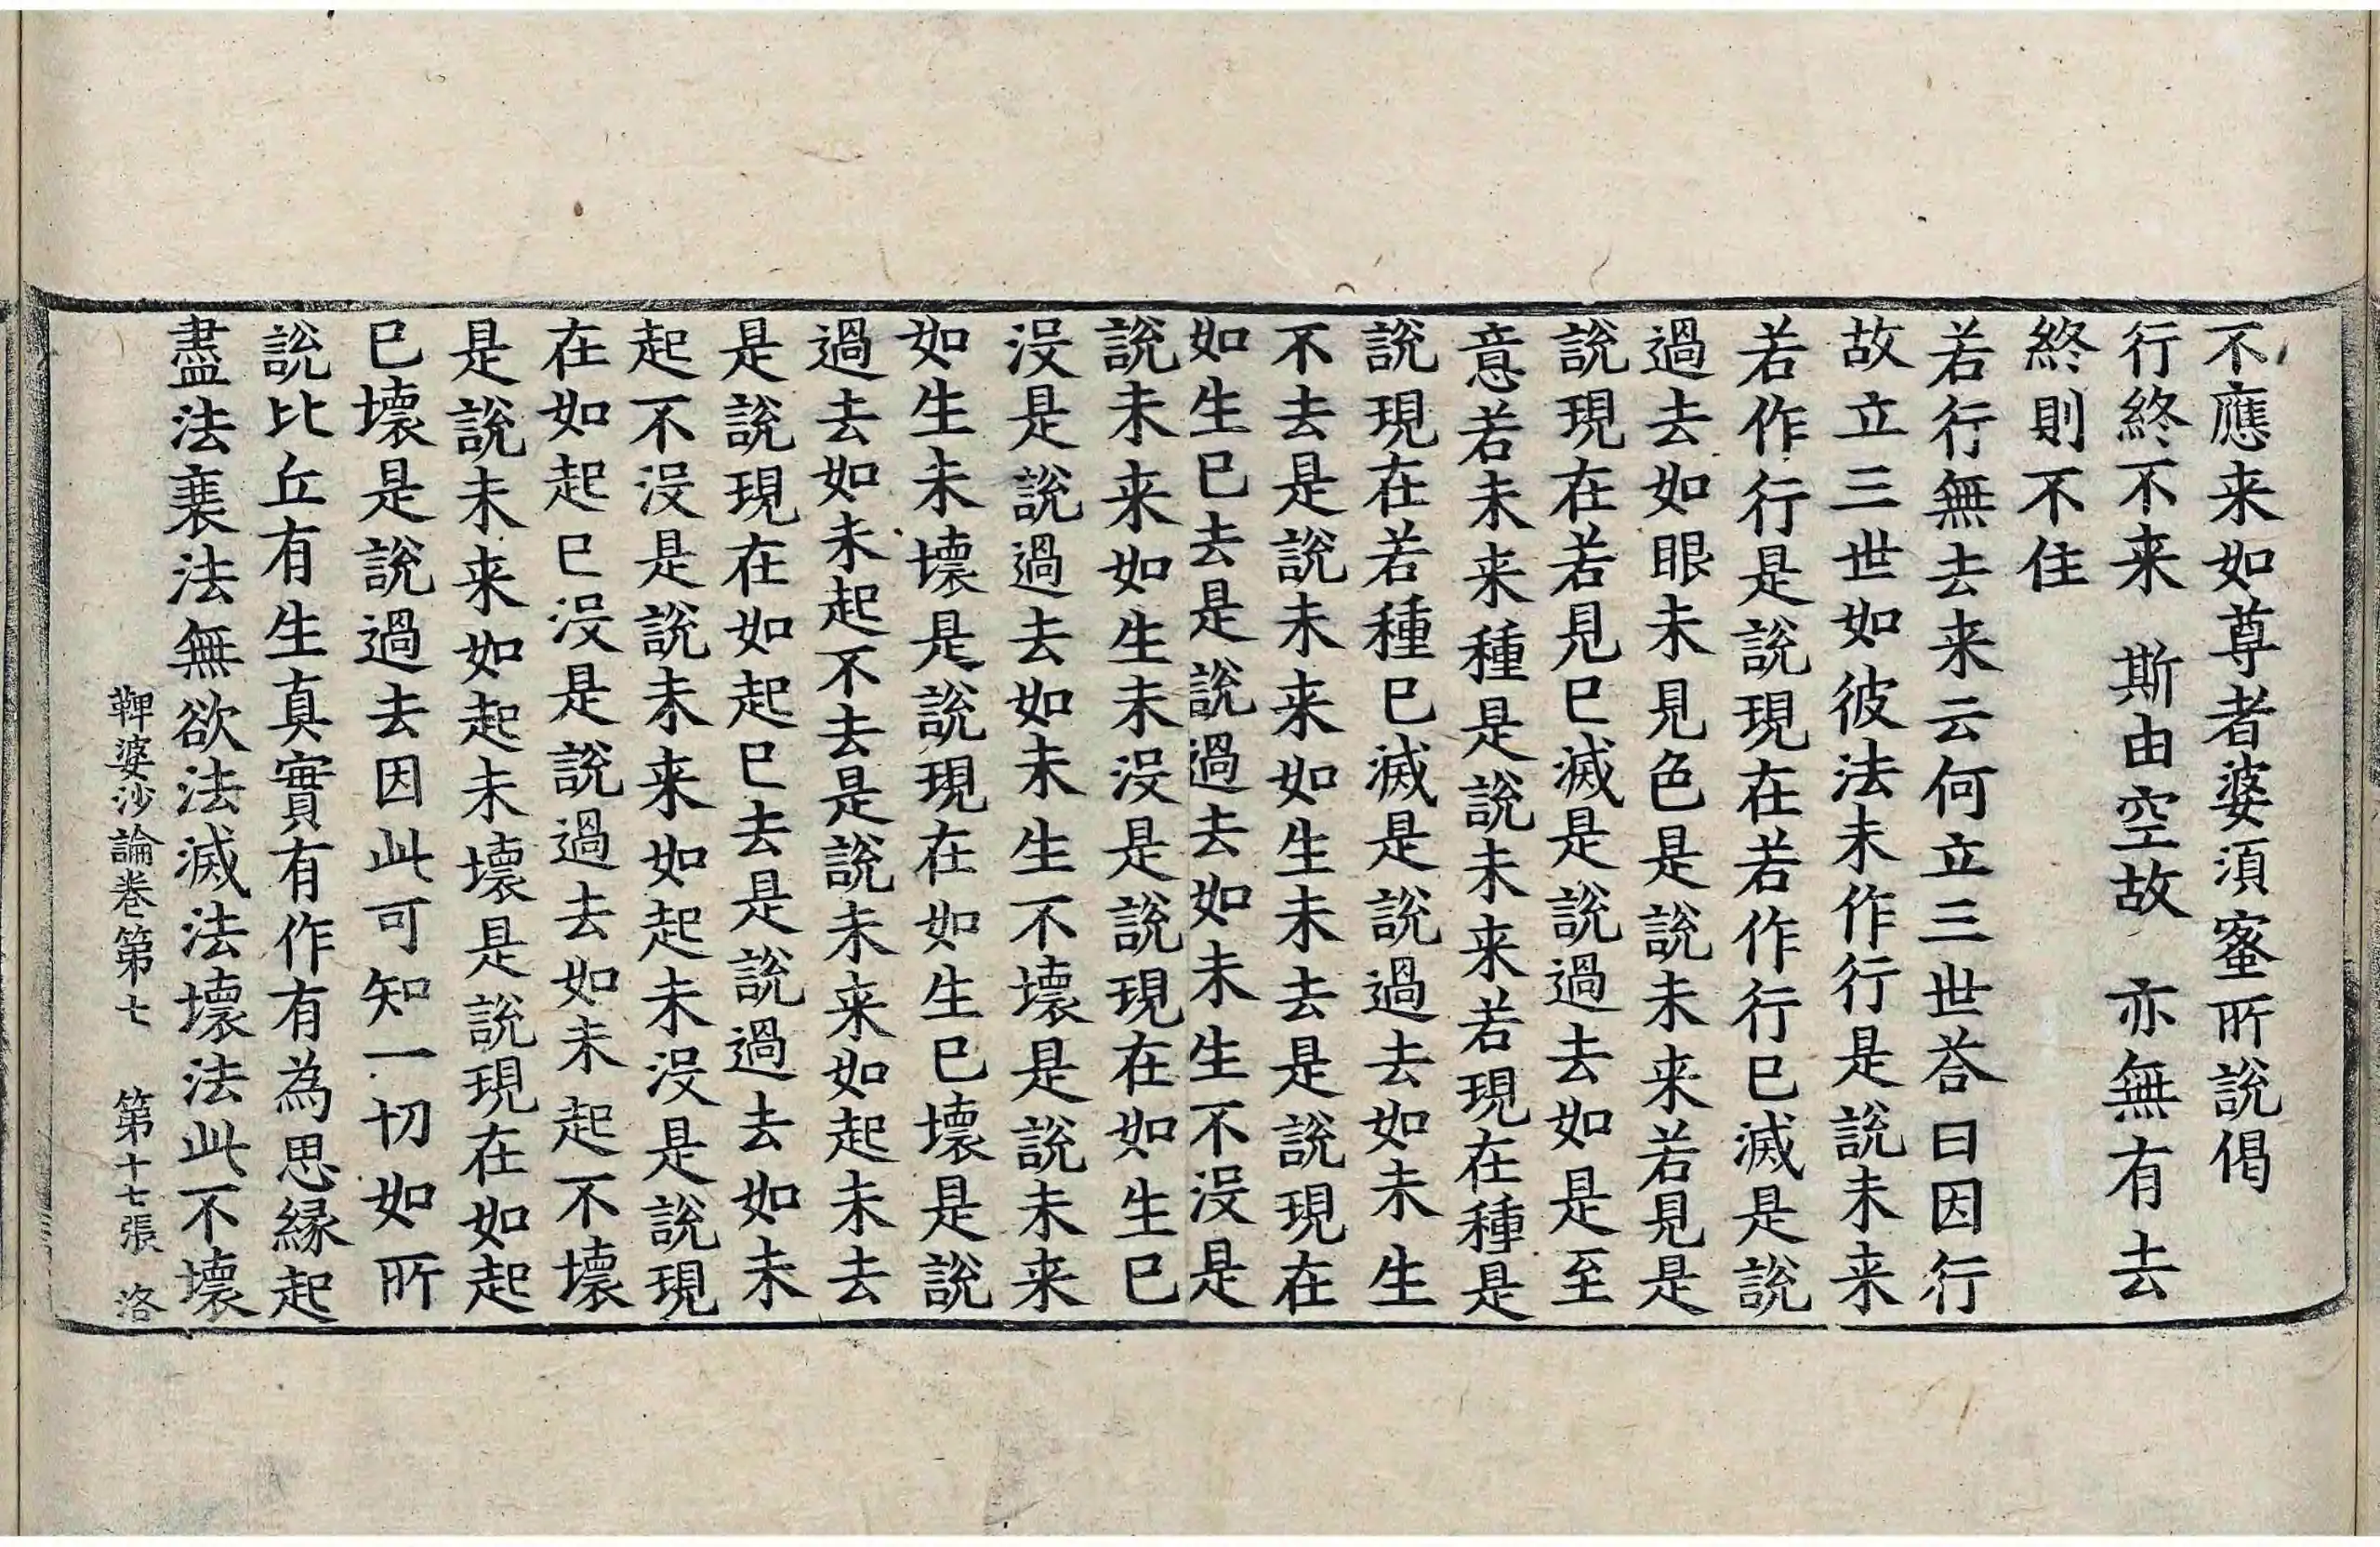 不應来如尊者婆須蜜所說偈
行終不来　斯由空故　亦無有去
終則不住
若行無去来云何立三世荅曰因行
故立三世如彼法未作行是說未来
若作行是說現在若作行巳滅是說
過去如眼未見色是說未来若見是
說現在若見巳滅是說過去如是至
意若未来種是說未来若現在種是
說現在若種巳滅是說過去如未生
不去是說未来如生未去是說現在
如生巳去是說過去如未生不沒是
說未来如生未沒是說現在如生巳
沒是說過去如未生不壞是說未来
如生未壞是說現在如生巳壞是說
過去如未起不去是說未来如起未去
是說現在如起巳去是說過去如未
起不沒是說未来如起未沒是說現
在如起巳沒是說過去如未起不壞
是說未来如起未壞是說現在如起
巳壞是說過去因此可知一切如所
說比丘有生真實有作有為思緣起
盡法衰法無欲法滅法壞法此不壞
鞞婆沙論卷第七　第十七張　洛